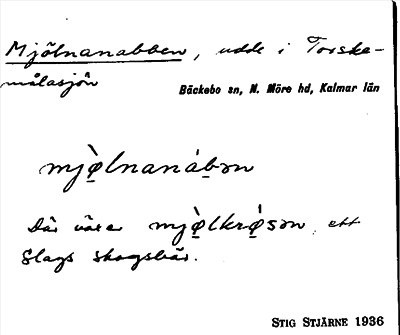 Mjölnanabben, udde i Torske-
målasjön
Bäckebo sn, N. Möre hd, Kalmar län
mjø̀lnanábən
Där växer mjø̀lkrǿsən, ett
slags skogsbär.
STIG STJÄRNE 1936